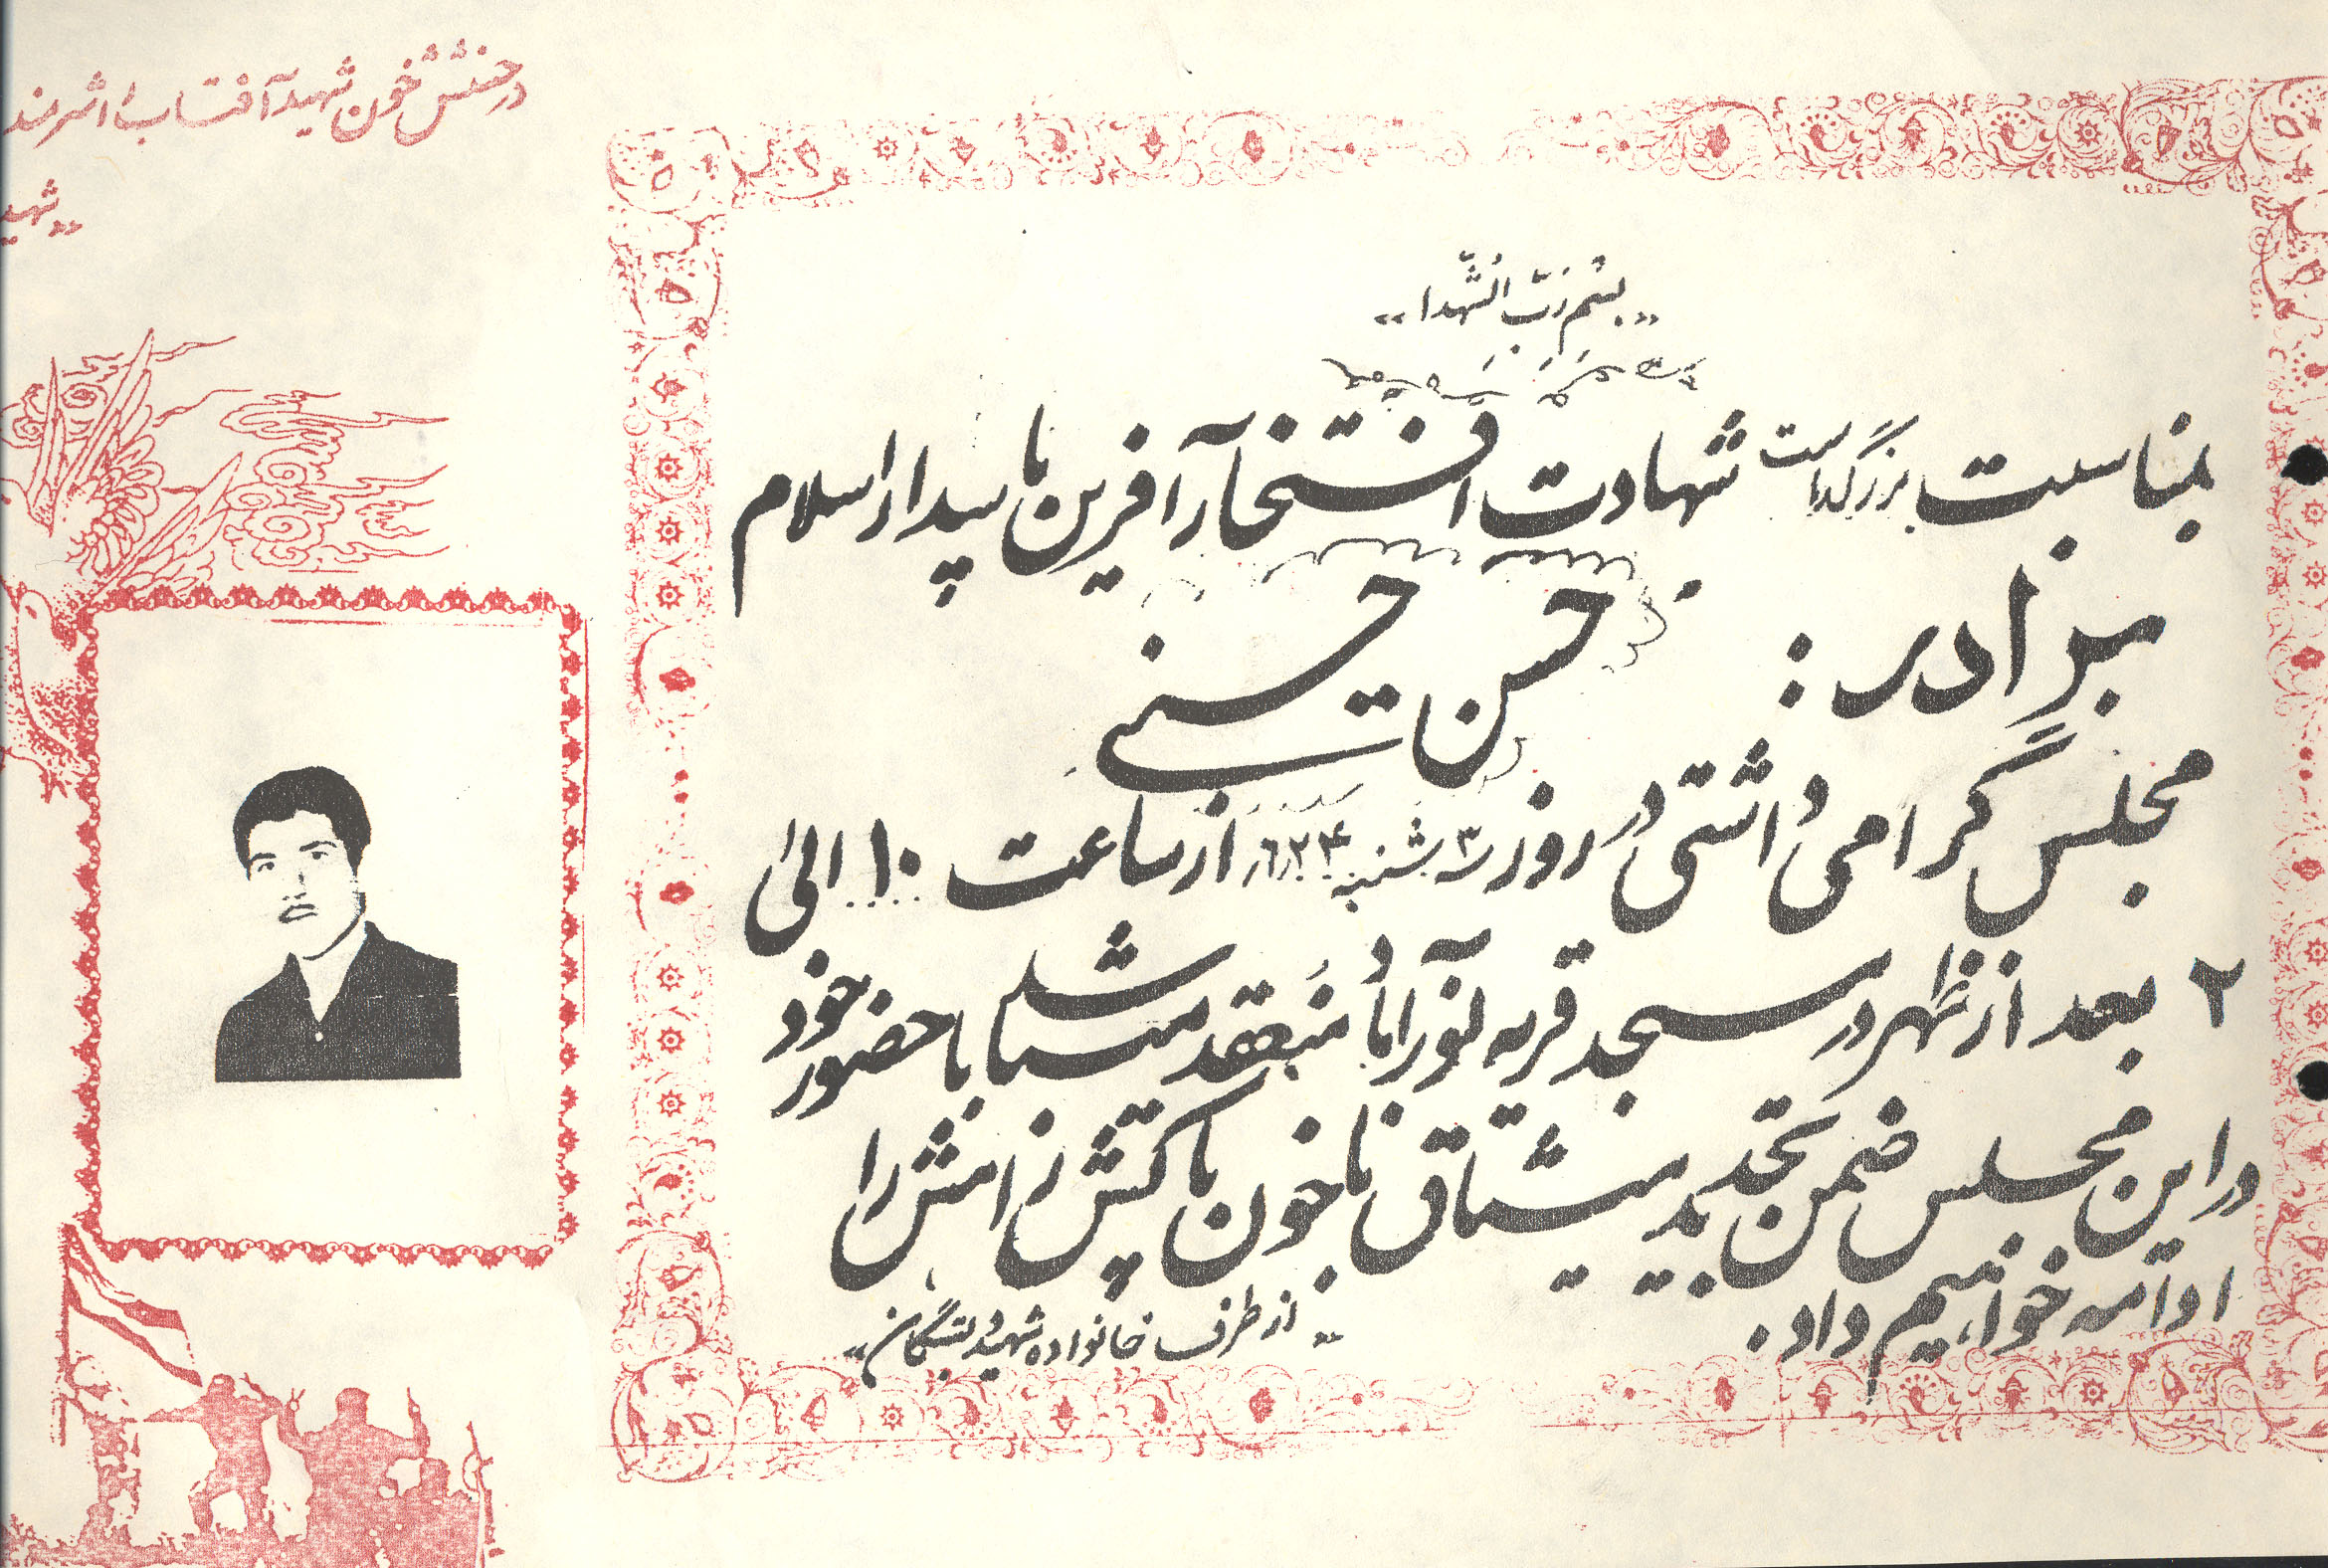 درخشش خون شهید آفتاب را شرمند
"شهید
"بسم رب الشهدا"
بمناسبت بزرگداشت شهادت افتخار آفرین پاسدار اسلام
برادر : حسن حسنی
مجلس گرامی داشتی در روز ۳ شنبه ۶٫۲۴ از ساعت ۱۰ الی
۲ بعد از ظهر در مسجد قریه نورآباد منعقد میباشد با حضور خود
در این مجلس ضمن تجدید میثاق با خون پاکش راهش را
ادامه خواهیم داد.
"از طرف خانواده شهید و بستگان"